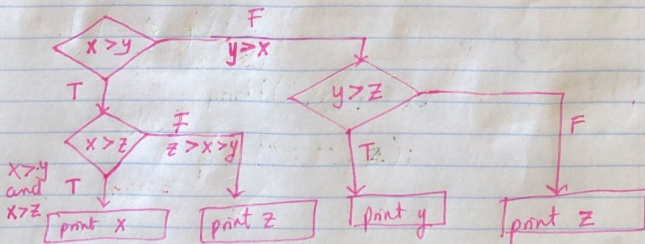 F
x>y
y>x
T
y>z
F
x>z
z>x>y
T
F
x>y
and
x>z
T
print x
print z
print y
print z